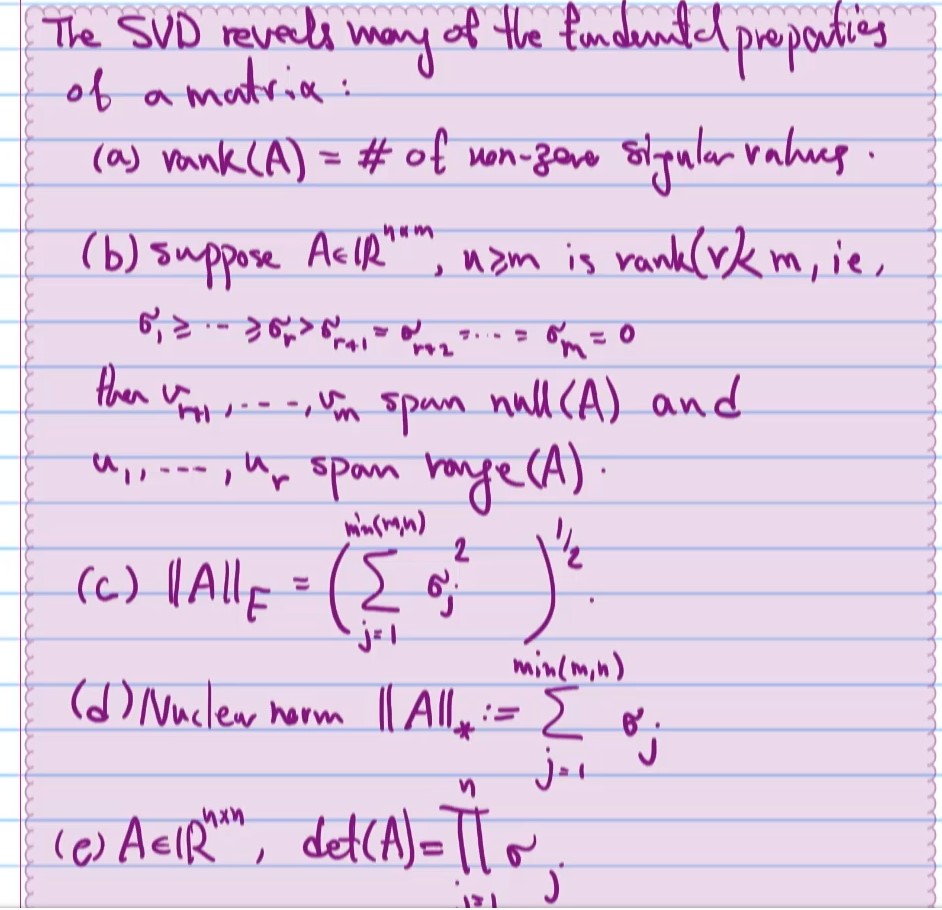 The SVD reveals many of the fundemtal propeties
of a matrix :
(a) rank(A) = # of non-zero singular values .
(b) suppose A∈ℝⁿˣᵐ, n≥m is rank(r)<m, ie,
σ₁ ≥ ... ≥ σᵣ > σᵣ₊₁ = σᵣ₊₂ = ... = σₘ = 0
then vᵣ₊₁ , ... , vₘ span null(A) and
u₁, ... , uᵣ span range(A) .
(c) ‖A‖_F = (∑_{j=1}^{min(m,n)} σⱼ²)^{1/2} .
(d) Nuclear norm ‖A‖_* := ∑_{j=1}^{min(m,n)} σⱼ
(e) A∈ℝⁿˣⁿ, det(A) = ∏_{j=1}^{n} σⱼ